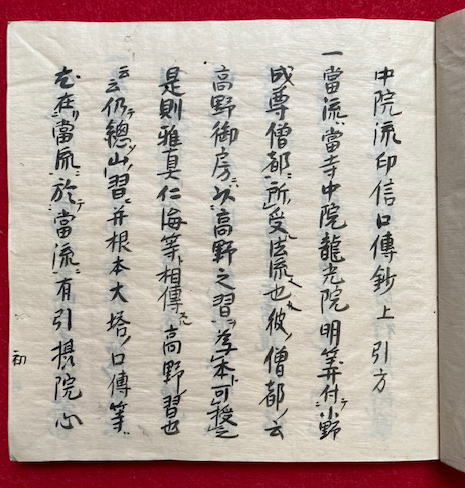 中院流印信口傳鈔上 引方
一當流當寺中院龍光院明算付テ小野
成尊僧都ニ所ノ受ル法流也彼ノ僧都ノ云
高野御房ニハ以高野之習ヲ為本ト可授之
是則雅真仁海等ニ相傳スル高野ノ習也
云云仍テ總山ノ習ニ并根本大塔ノ口傳等
在當流ニ於テ當流ニ有引攝院心
初